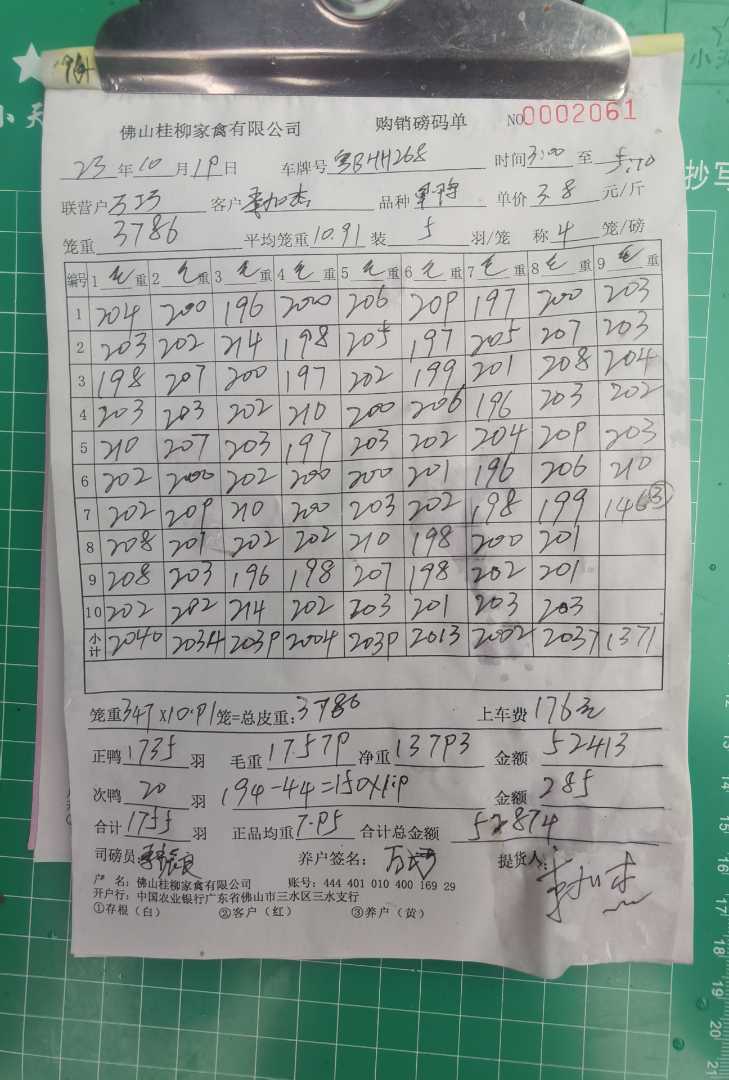 小
抄写
佛山桂柳家禽有限公司 购销磅码单 NO 0002061
23 年 10 月 19 日 车牌号 粤BHH268 时间 3:00 至 5:10
联营户 客户 品种 单价 3.8 元/斤
笼重 3786 平均笼重 10.91 装 5 羽/笼 称 4 笼/磅
编号 1 毛 重 2 毛 重 3 毛 重 4 毛 重 5 毛 重 6 毛 重 7 毛 重 8 毛 重 9 毛 重
1 204 200 196 200 206 209 197 200 203
2 203 202 214 198 205 197 205 207 203
3 198 207 200 197 202 199 201 208 204
4 203 203 202 210 200 206 196 203 202
5 210 207 203 197 203 202 204 209 203
6 202 200 202 200 200 201 196 206 210
7 202 209 210 200 203 202 198 199 146③
8 208 201 202 202 210 198 200 201
9 208 203 196 198 207 198 202 201
10 202 202 214 202 203 201 203 203
小计 2040 2034 2039 2004 2039 2013 2002 2037 1371
笼重 347 X 10.91 笼=总皮重: 3786 上车费 176元
正鸭 1735 羽 毛重 17579 净重 13793 金额 52413
次鸭 20 羽 194-44=150X1.9 金额 285
合计 1755 羽 正品均重 7.95 合计总金额 52874
司磅员: 养户签名: 提货人:
户 名: 佛山桂柳家禽有限公司 账号: 444 401 010 400 169 29
开户行: 中国农业银行广东省佛山市三水区三水支行
①存根（白） ②客户（红） ③养户（黄）
17
18
19
20
21